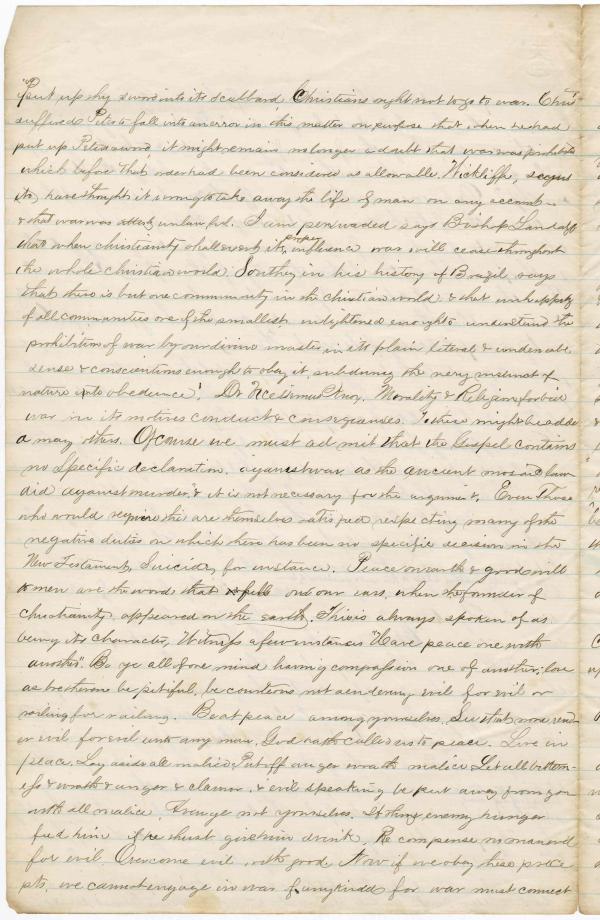 "Put up thy sword into its scabbard, Christians ought not to go to war. Christ
suffered Peter to fall into an error in this matter on purpose that, when he had
put up Peters sword it might remain no longer a doubt that war was prohibited
which before that order had been considered as allowable. Wickliffe, seems
to, have thought it wrong to take away the life of man on any account
& that war was utterly unlawful. I am persuaded says Bishop Landaff
that when christianity shall exert its proper influence war will cease throughout
the whole christian world. Southey in his history of Brazil says
that there is but one community in the christian world & that unhappily
of all communities one of the smallest enlightened enough to understand the
prohibition of war by our divine master in its plain literal & undeniable
sense & conscientious enough to obey it, subduing the very instinct of
nature into obedience". Dr Knox, Morality & Religion forbid
war in its motives conduct & consequences. To these might be added
a many others. Of course we must admit that the Gospel contains
no specific declaration. against war as the ancient mosaic law
did against murder, & it is not necessary for the argument. Even Those
who would require this are themselves satisfied respecting many of the
negative duties on which there has been no specific decision in the
New Testament, Suicide, for instance. Peace on earth & good will
to men are the words that fell on our ears, when the founder of
christianity appeared on the earth. This is always spoken of as
being its character, Witness a few instances "Have peace one with
another". Be ye all of one mind having compassion one of another; love
as bretheren be pitiful, be courteous not rendering evil for evil or
railing for railing. Be at peace among yourselves. See that none rend-
er evil for evil unto any man, God hath called us to peace. Live in
peace, Lay aside all malice, Put off anger wrath malice Let all bittern-
ess & wrath & anger & clamor. & evil speaking be put away from you
with all malice. Avenge not yourselves. If thine enemy hunger
feed him if he thirst give him drink, Recompense no man evil
for evil. Overcome evil with good. Now if we obey these prece
pts, we cannot engage in war of any kind for war must connect